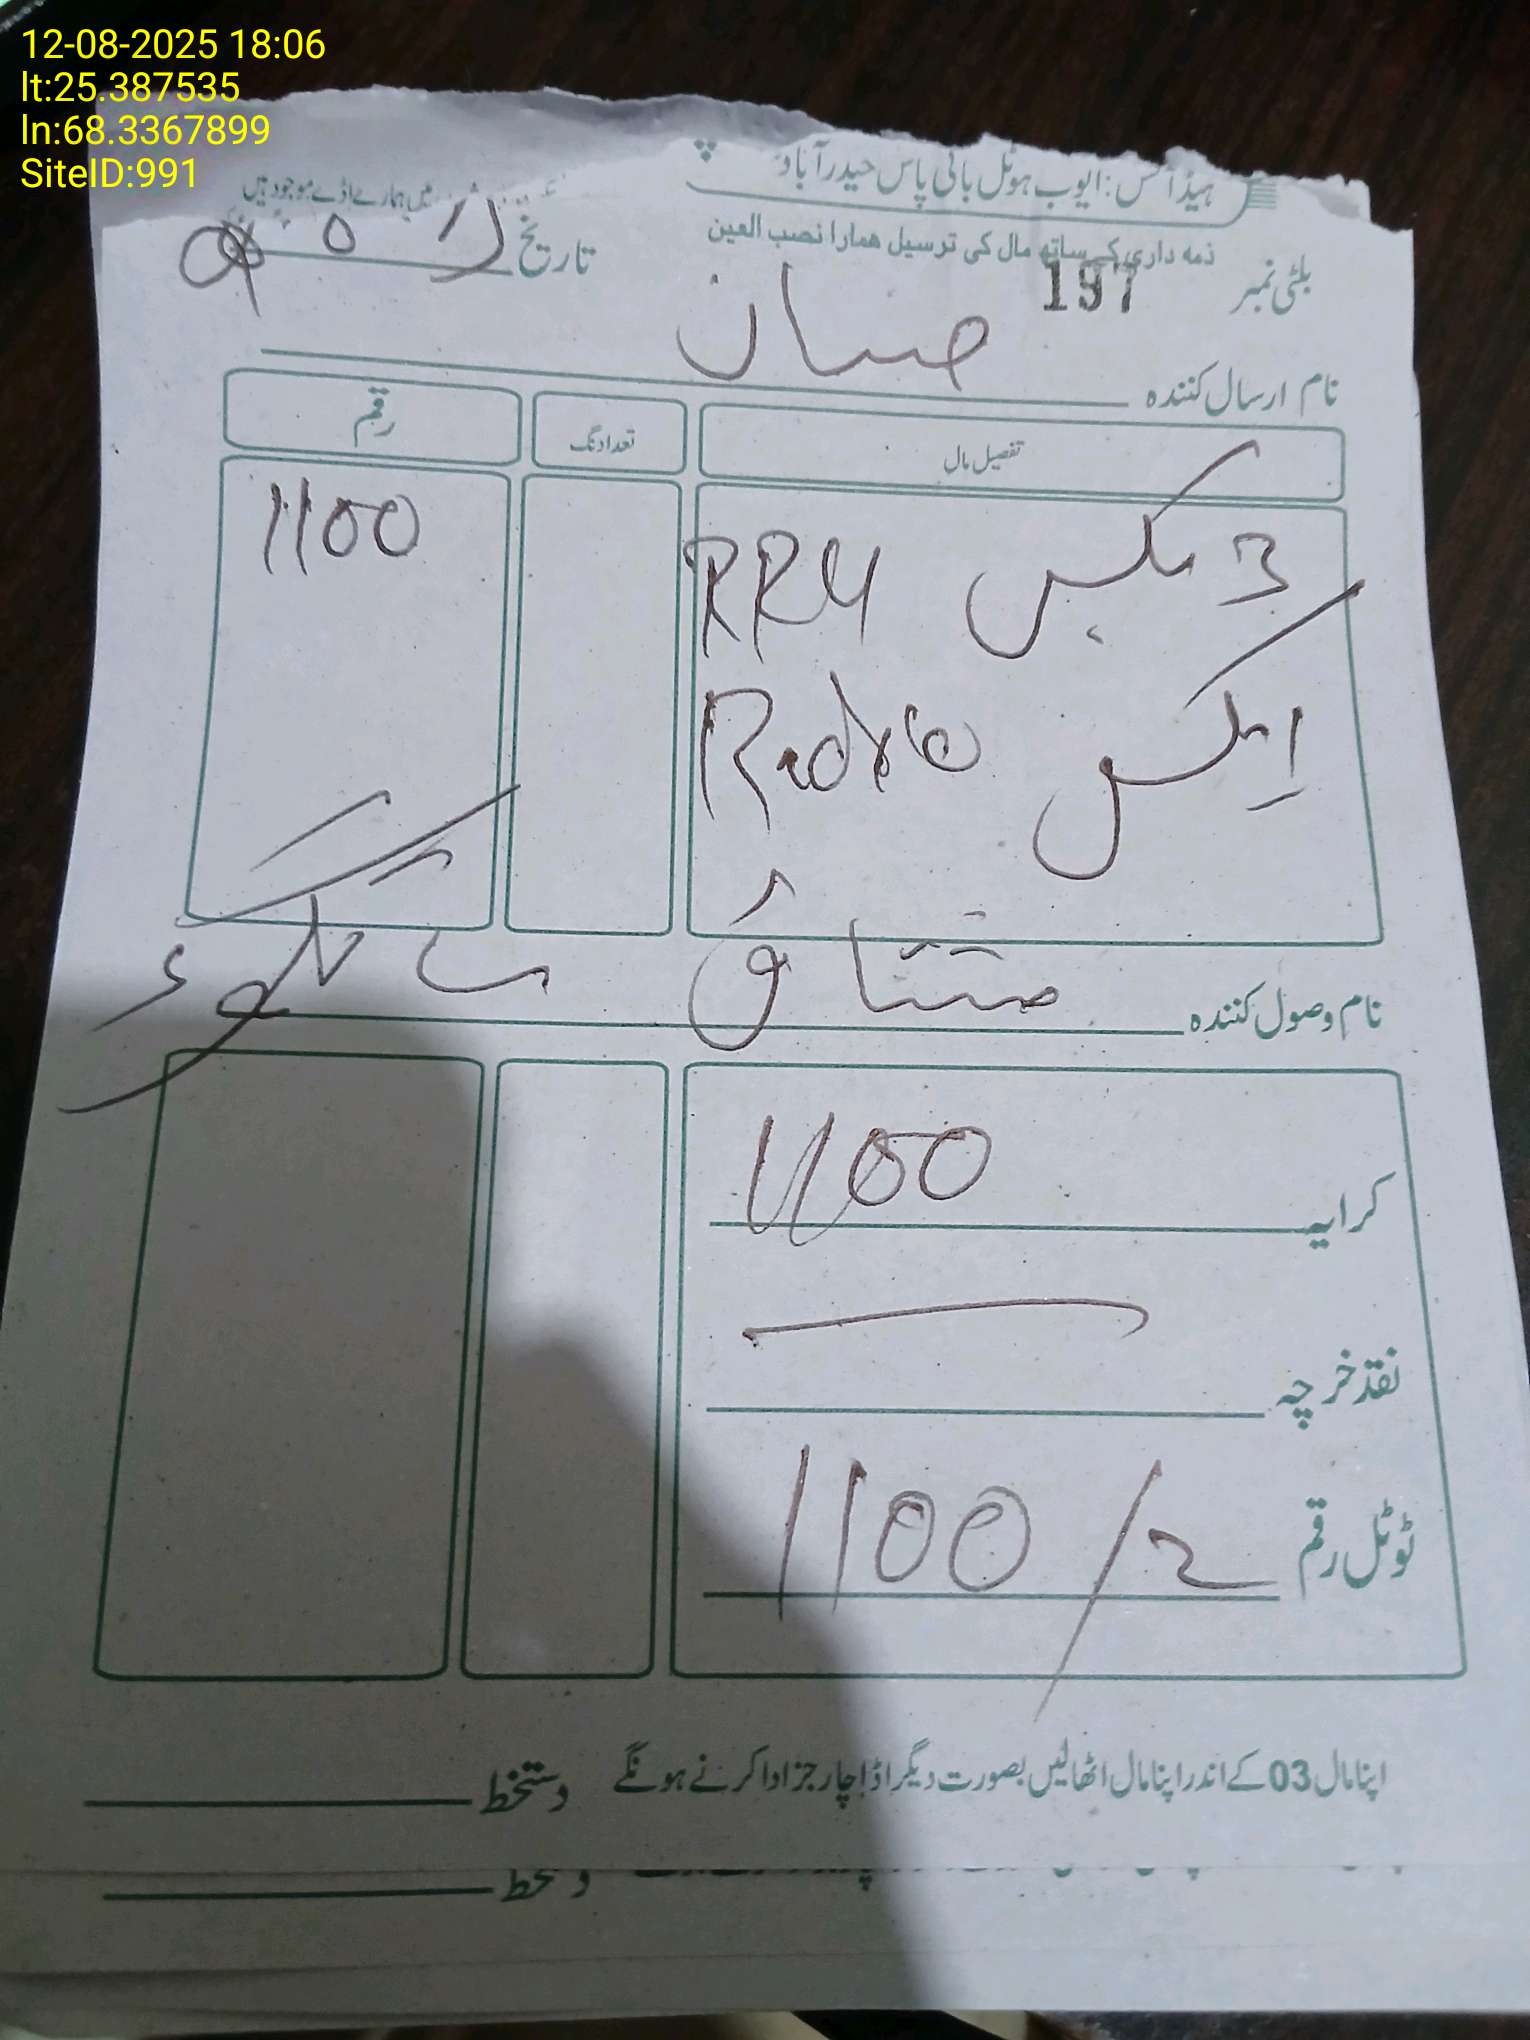 12-08-2025 18:06
lt:25.387535
ln:68.3367899
SiteID:991
ہیڈ آفس: ایوب ہوٹل بائی پاس حیدرآباد
میں ہمارے اڈے موجود ہیں
ذمہ داری کے ساتھ مال کی ترسیل ہمارا نصب العین
بلٹی نمبر 197 تاریخ
نام ارسال کنندہ
تفصیل مال تعداد نگ رقم
3 بکس RRU 1100
بکس Radio
نام وصول کنندہ مشتاق
کرایہ 1100
نقد خرچہ
ٹوٹل رقم 1100/
اپنا مال 03 کے اندر اپنا مال اٹھالیں بصورت دیگر اڈا چارجز ادا کرنے ہونگے دستخط
دستخط